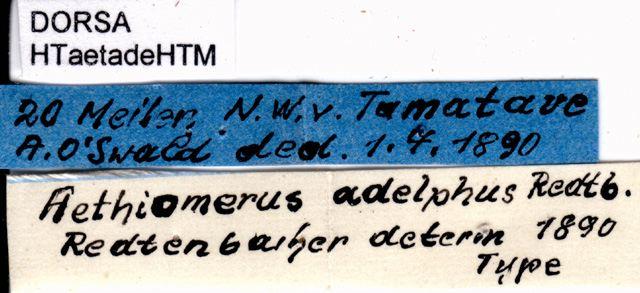 DORSA
HTaetadeHTM
20 Meilen N.W.v. Tamatave
A. O'Swald ded. 1.7.1890
Aethiomerus adelphus Redtb.
Redtenbacher determ 1890
Type